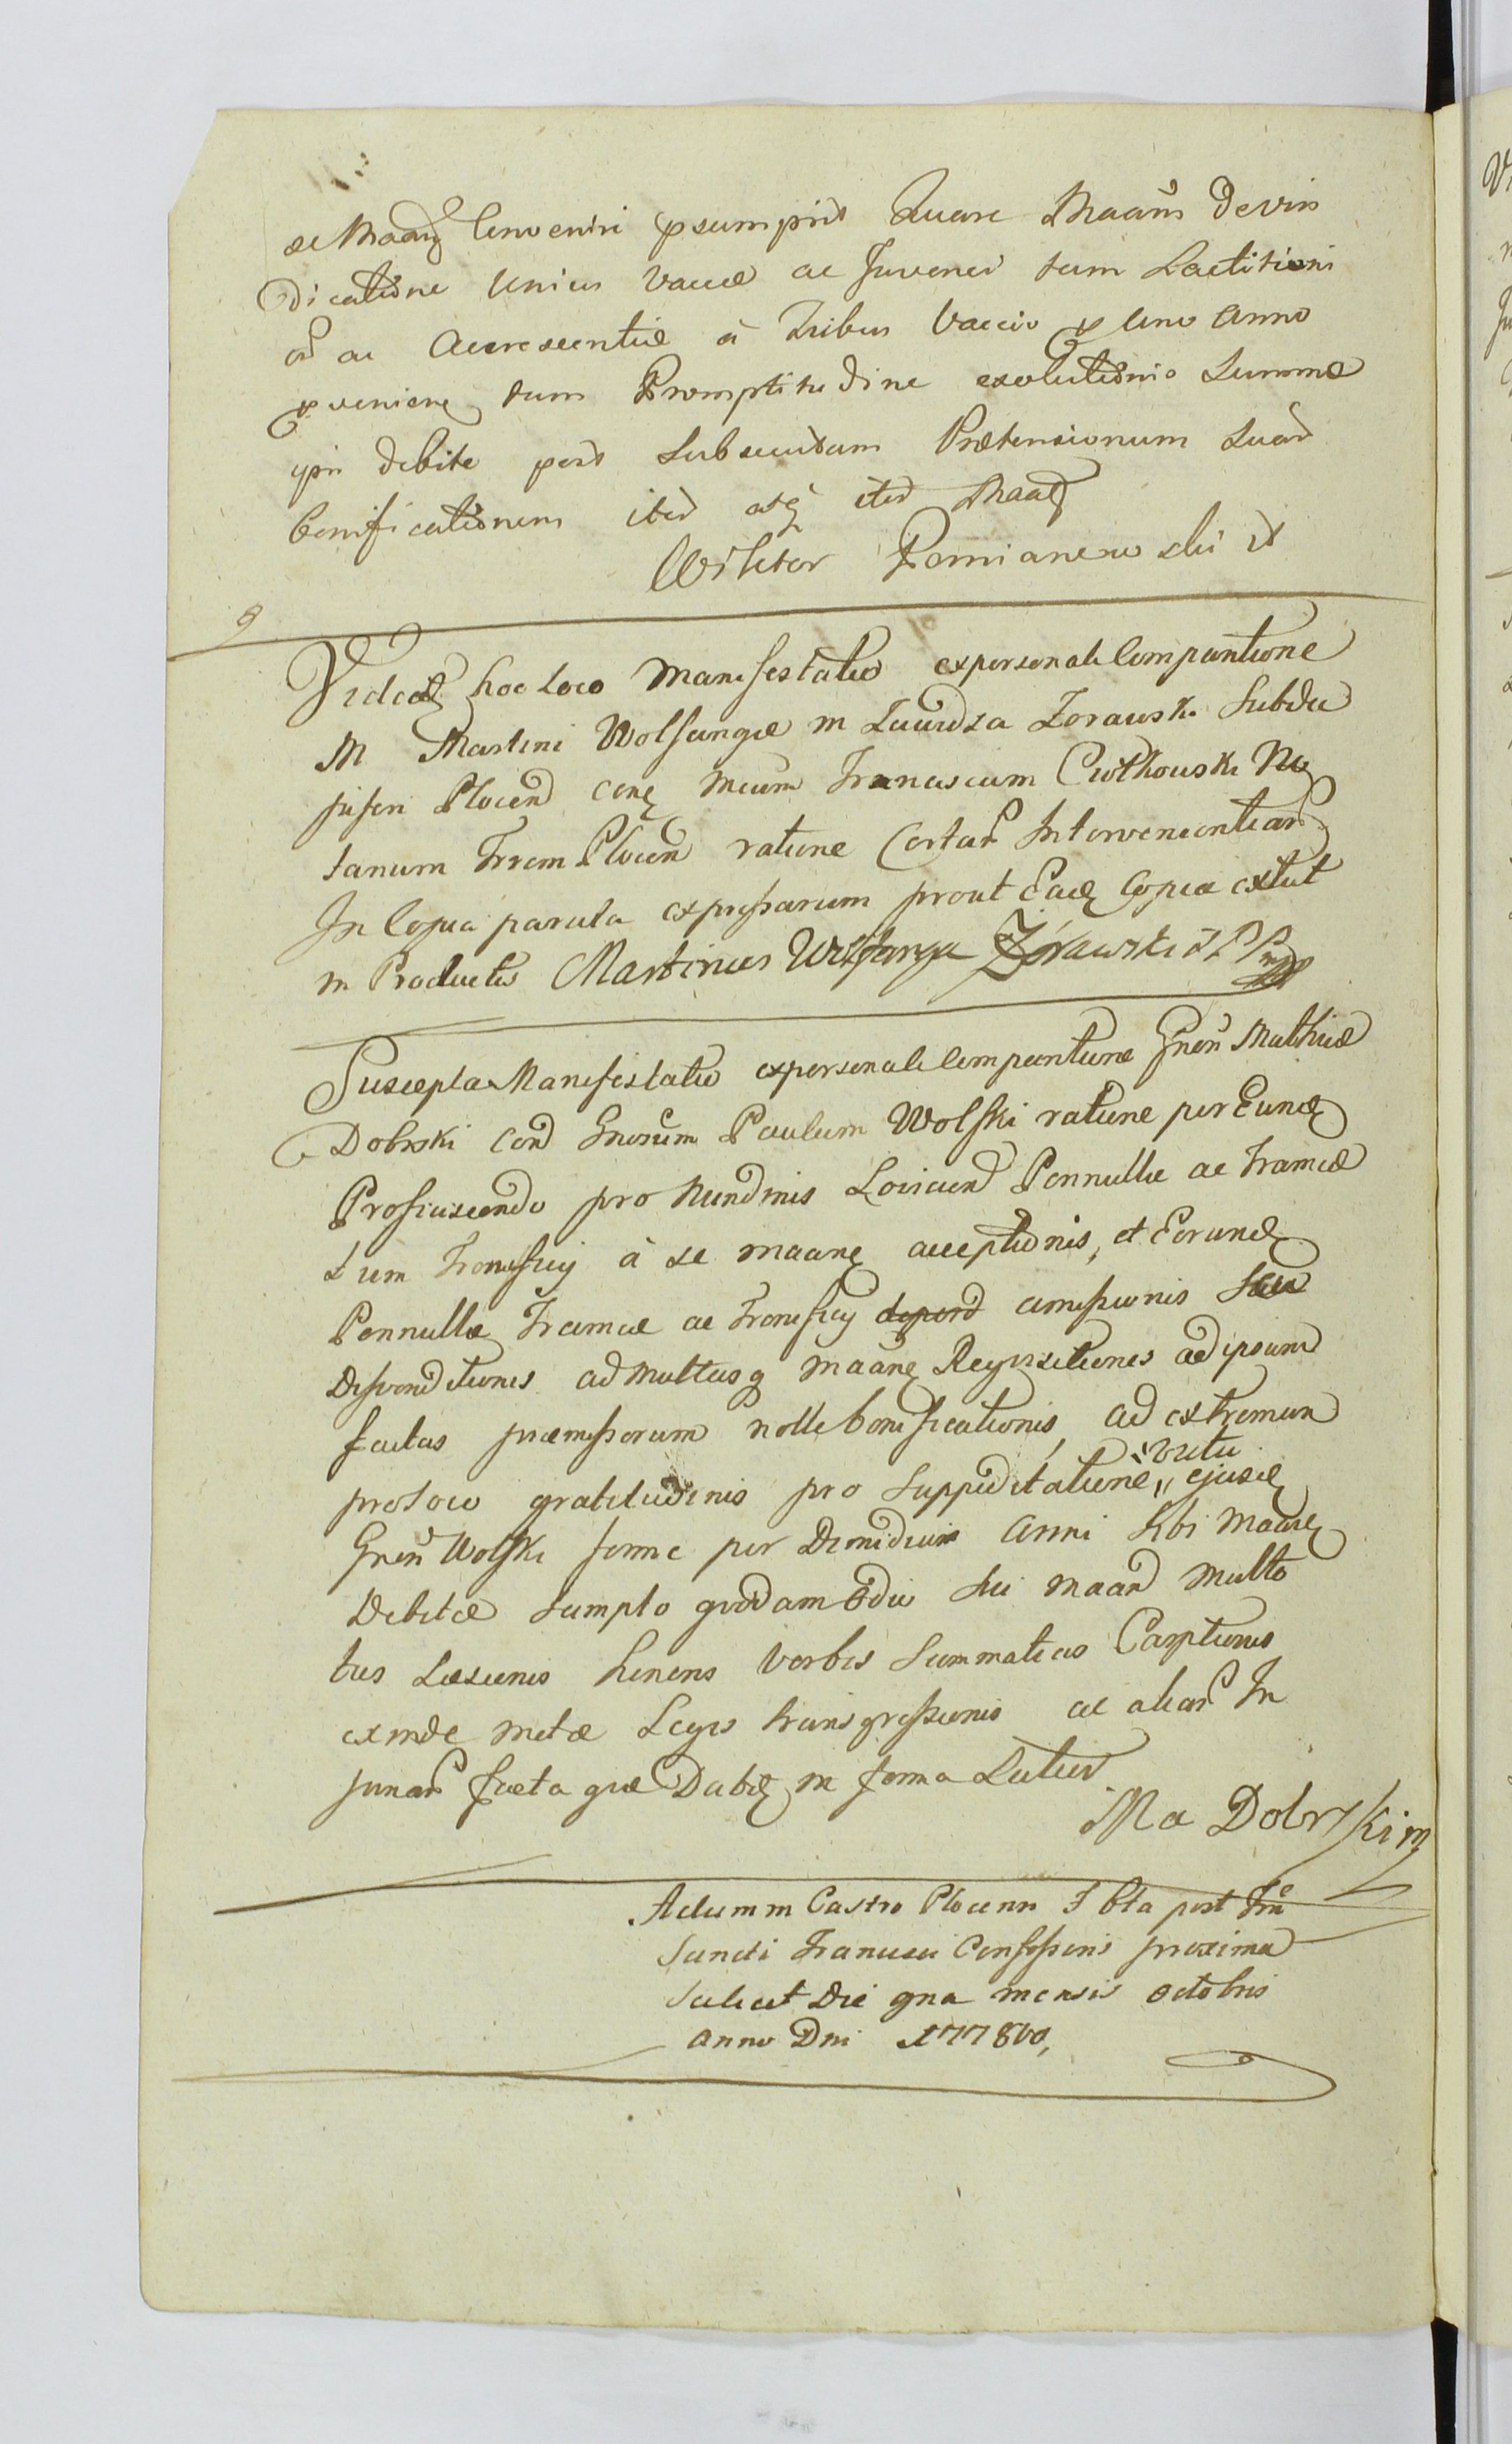 se Maan Conveniri psumpsit Quare Maans de vin
dicatione Unius Vaccæ ac Juvenci tum Lactitiori
od ac Accrescentiæ à Tribus Vaccis p Uno Anno
pvenien tum Promptitudine exolutionis Summæ
ipsi debite post Subsecutam Prætensionum Suar
Bonificationem iter atq iter Maat
Wiktor Pomianowski
Videat hoc Loco Manifestatio ex personali Compantione
M Martini Wolfangæ in Zaurdza Zorawski Subda
piferi Plocen con Mcum Franciscum Ciołkowski No
tarium Trrem Plocen ratione Certar Intervenientiar
In Copia parata expressarum prout Eaď Copia extat
in Productis Martinus Wolfanga Żórawski
Suscepta Manifestatio ex personali Compantione Gnen Mathiæ
Dobrski con Gnosum Paulum Wolski ratione per Eunď
Proficiscendo pro Nundinis Lovicien Pennullæ ac Framiæ
tum à se maane acceptionis, et Eorunď
Pennullæ Framiæ ac amissionis Seu
Disvenditionis ad Multasq Maane Requisitiones ad ipsum
factas præmissorum nolle bonificationis, ad extremum
pro Loco gratitudinis pro Suppeditatione " victu ejusď
Gnen Wolski ferme per Dimidium Anni Sibi Maane
Debitæ Sumpto quodam Odio Sui Maan Multo
ties Læsionis honoris Verbis Summaticis Carptionis
exinde metæ Legis transgressionis ac aliar In
juriar facta quæ Dabit in forma Latiori
Ma Dobrski m
Actum in Castro Plocenn F bta post Ftu
Sancti Francisci Confessoris proxima
Scilicet Die qna mensis Octobris
Anno Dni 177